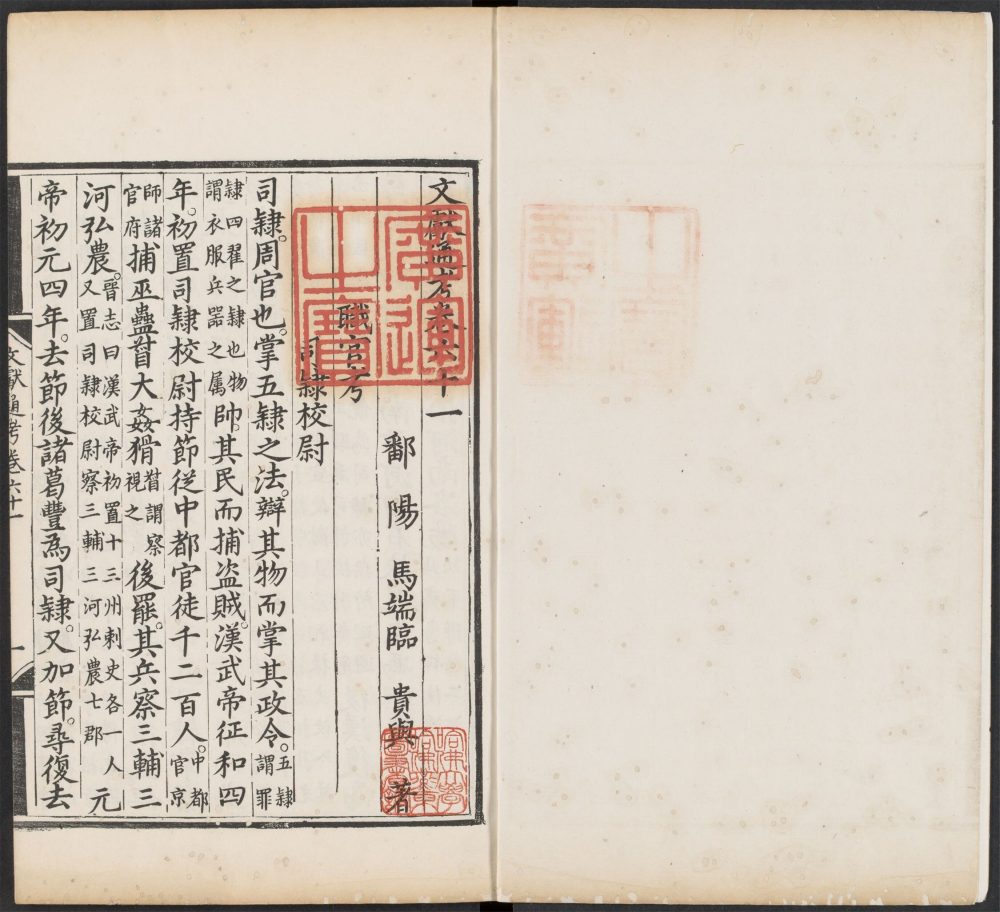 文獻通考卷六十一
鄱陽馬端臨貴與著
職官考
司隸校尉
司隸。周官也。掌五隸之法。辯其物而掌其政令。五隸謂罪
隸四翟之隸也物謂衣服兵器之屬帥。其民而捕盜賊。漢武帝征和四
年。初置司隸校尉持節從中都官徒千二百人。中都官京
師諸官府捕巫蠱督大姦猾督謂察視之後罷。其兵察三輔三
河弘農。晉志曰漢武帝初置十三州刺史各一人又置司隸校尉察三輔三河弘農七郡元
帝初元四年。去節後諸葛豐爲司隸。又加節。尋復去
文獻通考卷六十一
一
廣運之寶